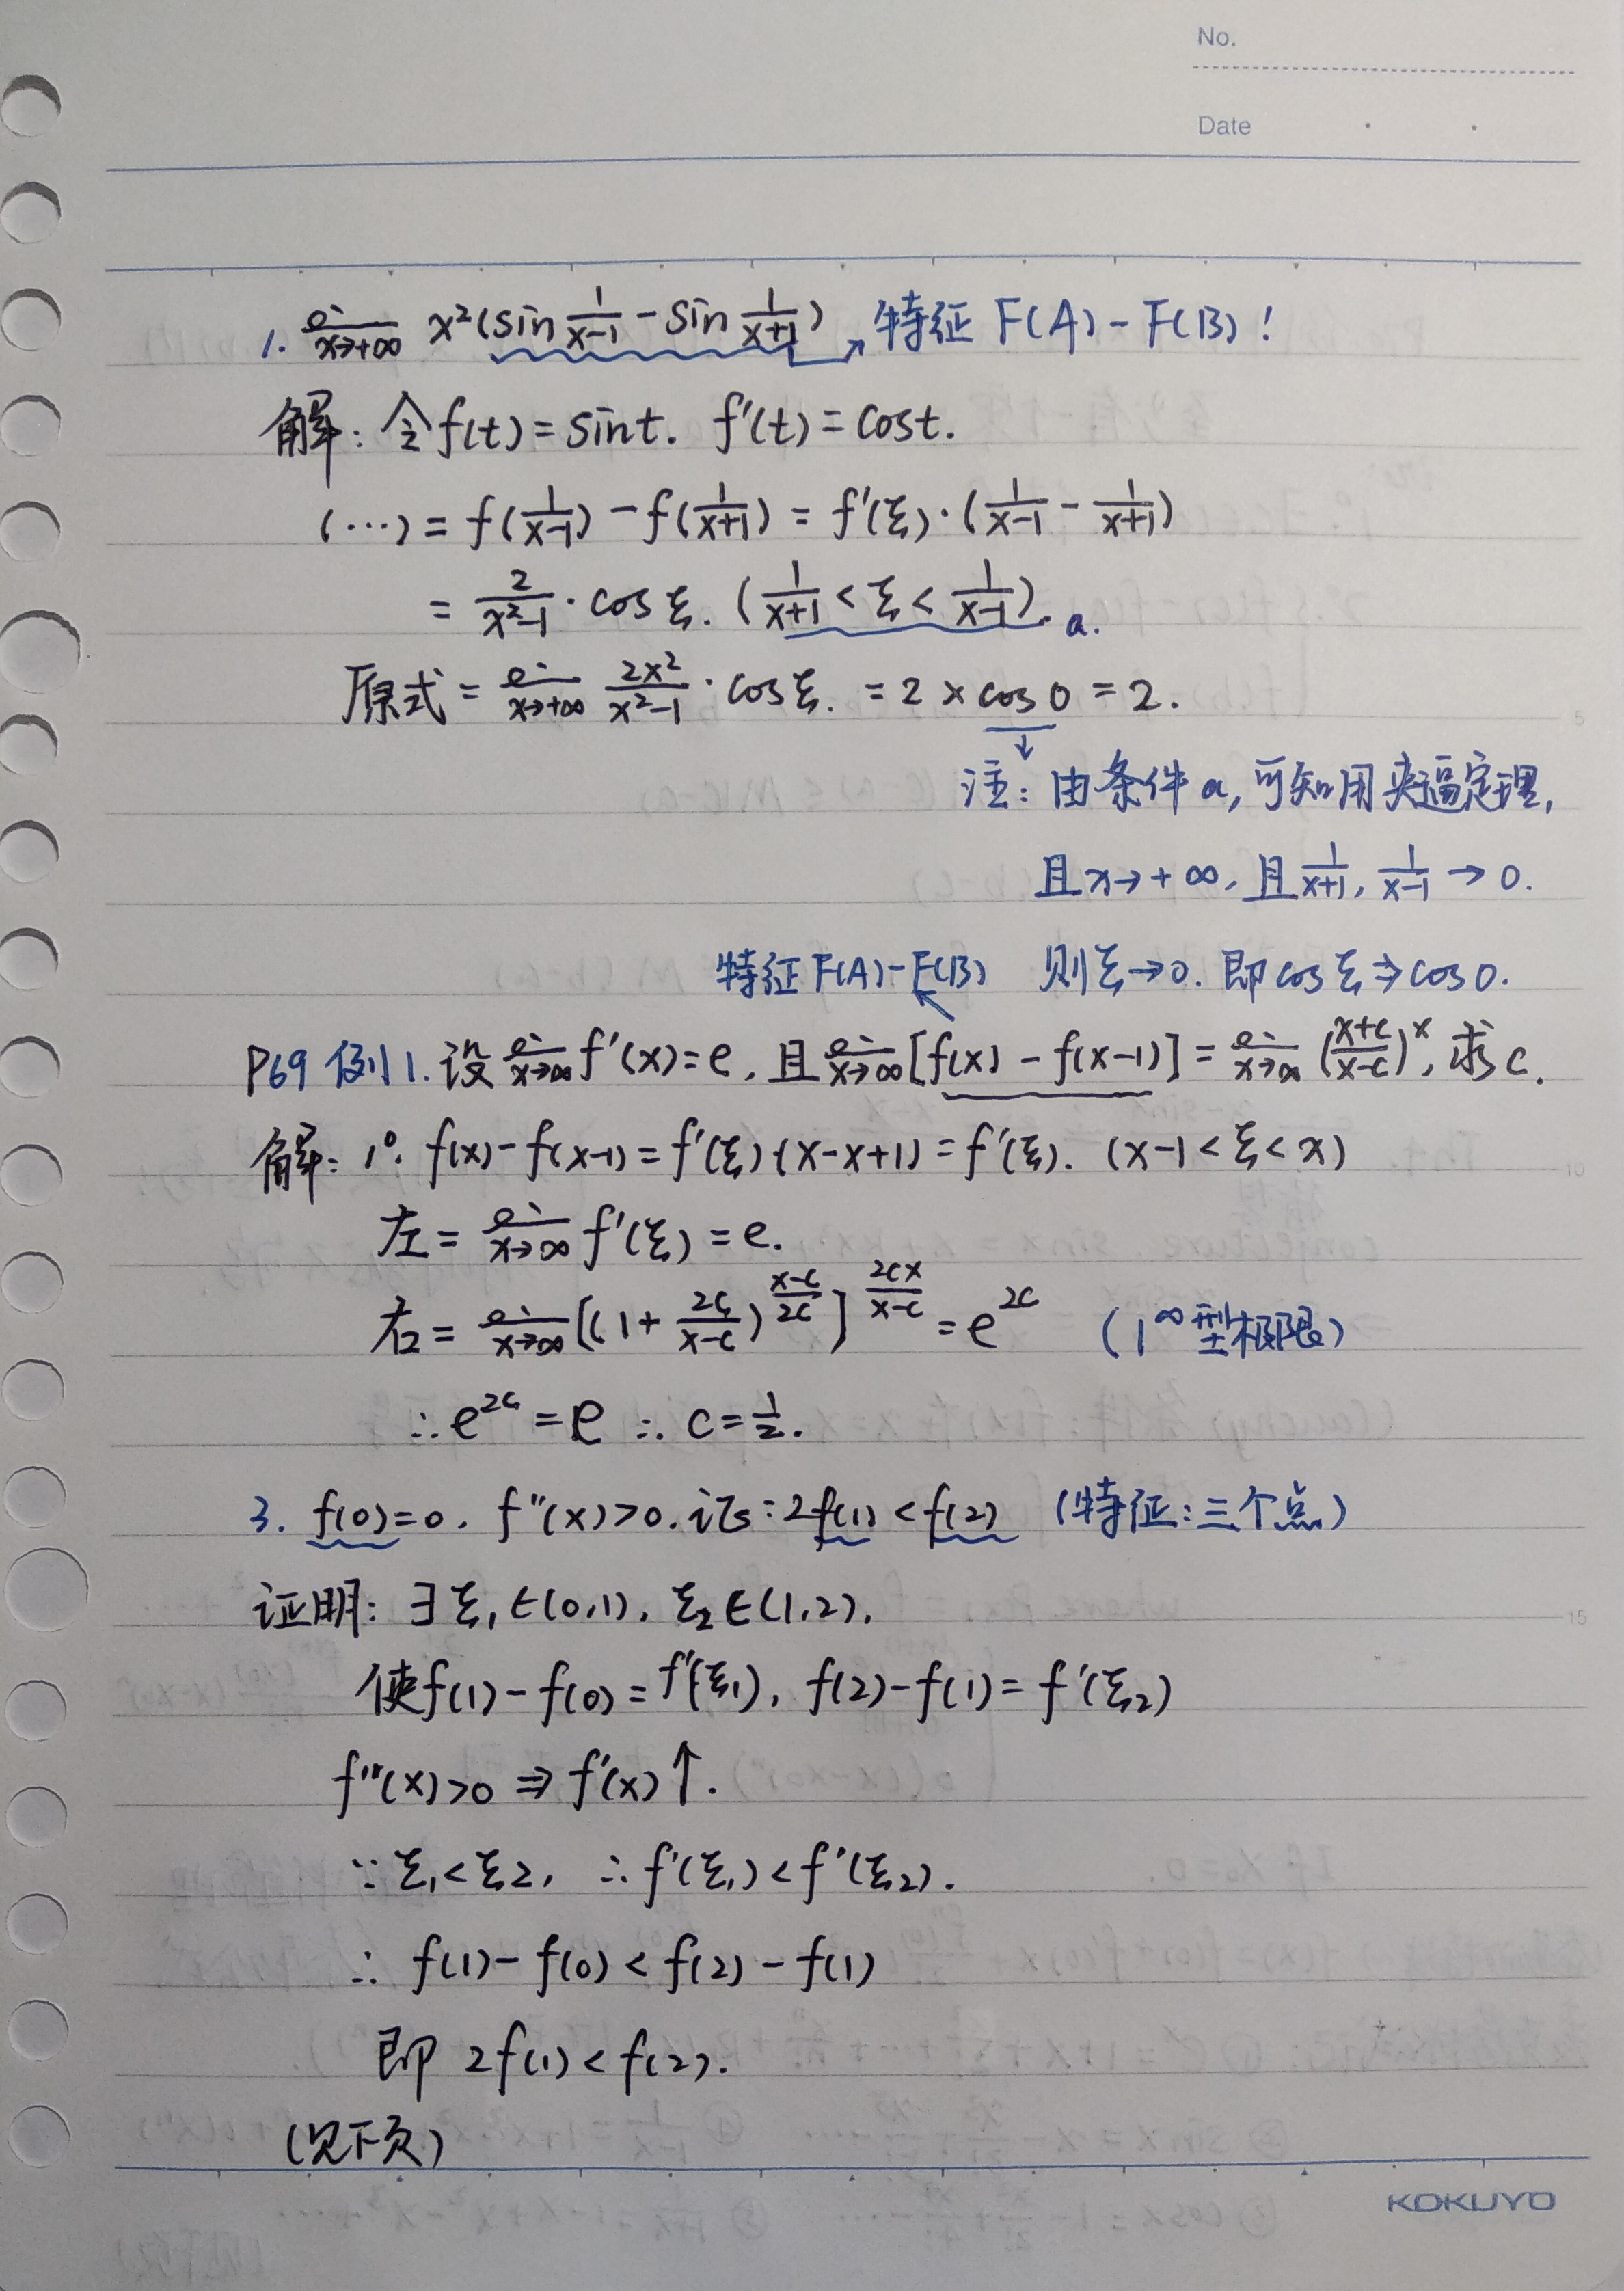 No.
Date
1. lim x→+∞ x²(sin 1/(x-1) - sin 1/(x+1)) → 特征 F(A)-F(B)!
解: 令f(t)=sint. f'(t)=cost.
(…)=f(1/(x-1))-f(1/(x+1))=f'(ξ)·(1/(x-1)-1/(x+1))
=2/(x²-1)·cosξ. (1/(x+1)<ξ<1/(x-1)). a.
原式=lim x→+∞ 2x²/(x²-1)·cosξ. =2×cos0=2.
↓
注: 由条件a,可知用夹逼定理,
且x→+∞,且1/(x+1), 1/(x-1)→0.
特征F(A)-F(B) 则ξ→0. 即cosξ⇒cos0.
P69 例1. 设lim x→∞ f'(x)=e, 且lim x→∞ [f(x)-f(x-1)]=lim x→∞ ((x+c)/(x-c))^x, 求c.
解: 1°. f(x)-f(x-1)=f'(ξ)·(x-x+1)=f'(ξ). (x-1<ξ<x)
左=lim x→∞ f'(ξ)=e.
右=lim x→∞ [(1+2c/(x-c))^((x-c)/2c)]^(2cx/(x-c))=e^(2c) (1^∞型极限)
∴e^(2c)=e ∴c=1/2.
3. f(0)=0. f''(x)>0. 证:2f(1)<f(2) (特征:三个点)
证明: ∃ξ₁∈(0,1), ξ₂∈(1,2),
使f(1)-f(0)=f'(ξ₁), f(2)-f(1)=f'(ξ₂)
f''(x)>0⇒f'(x)↑.
∵ξ₁<ξ₂, ∴f'(ξ₁)<f'(ξ₂).
∴f(1)-f(0)<f(2)-f(1)
即 2f(1)<f(2).
(见下页)
KOKUYO